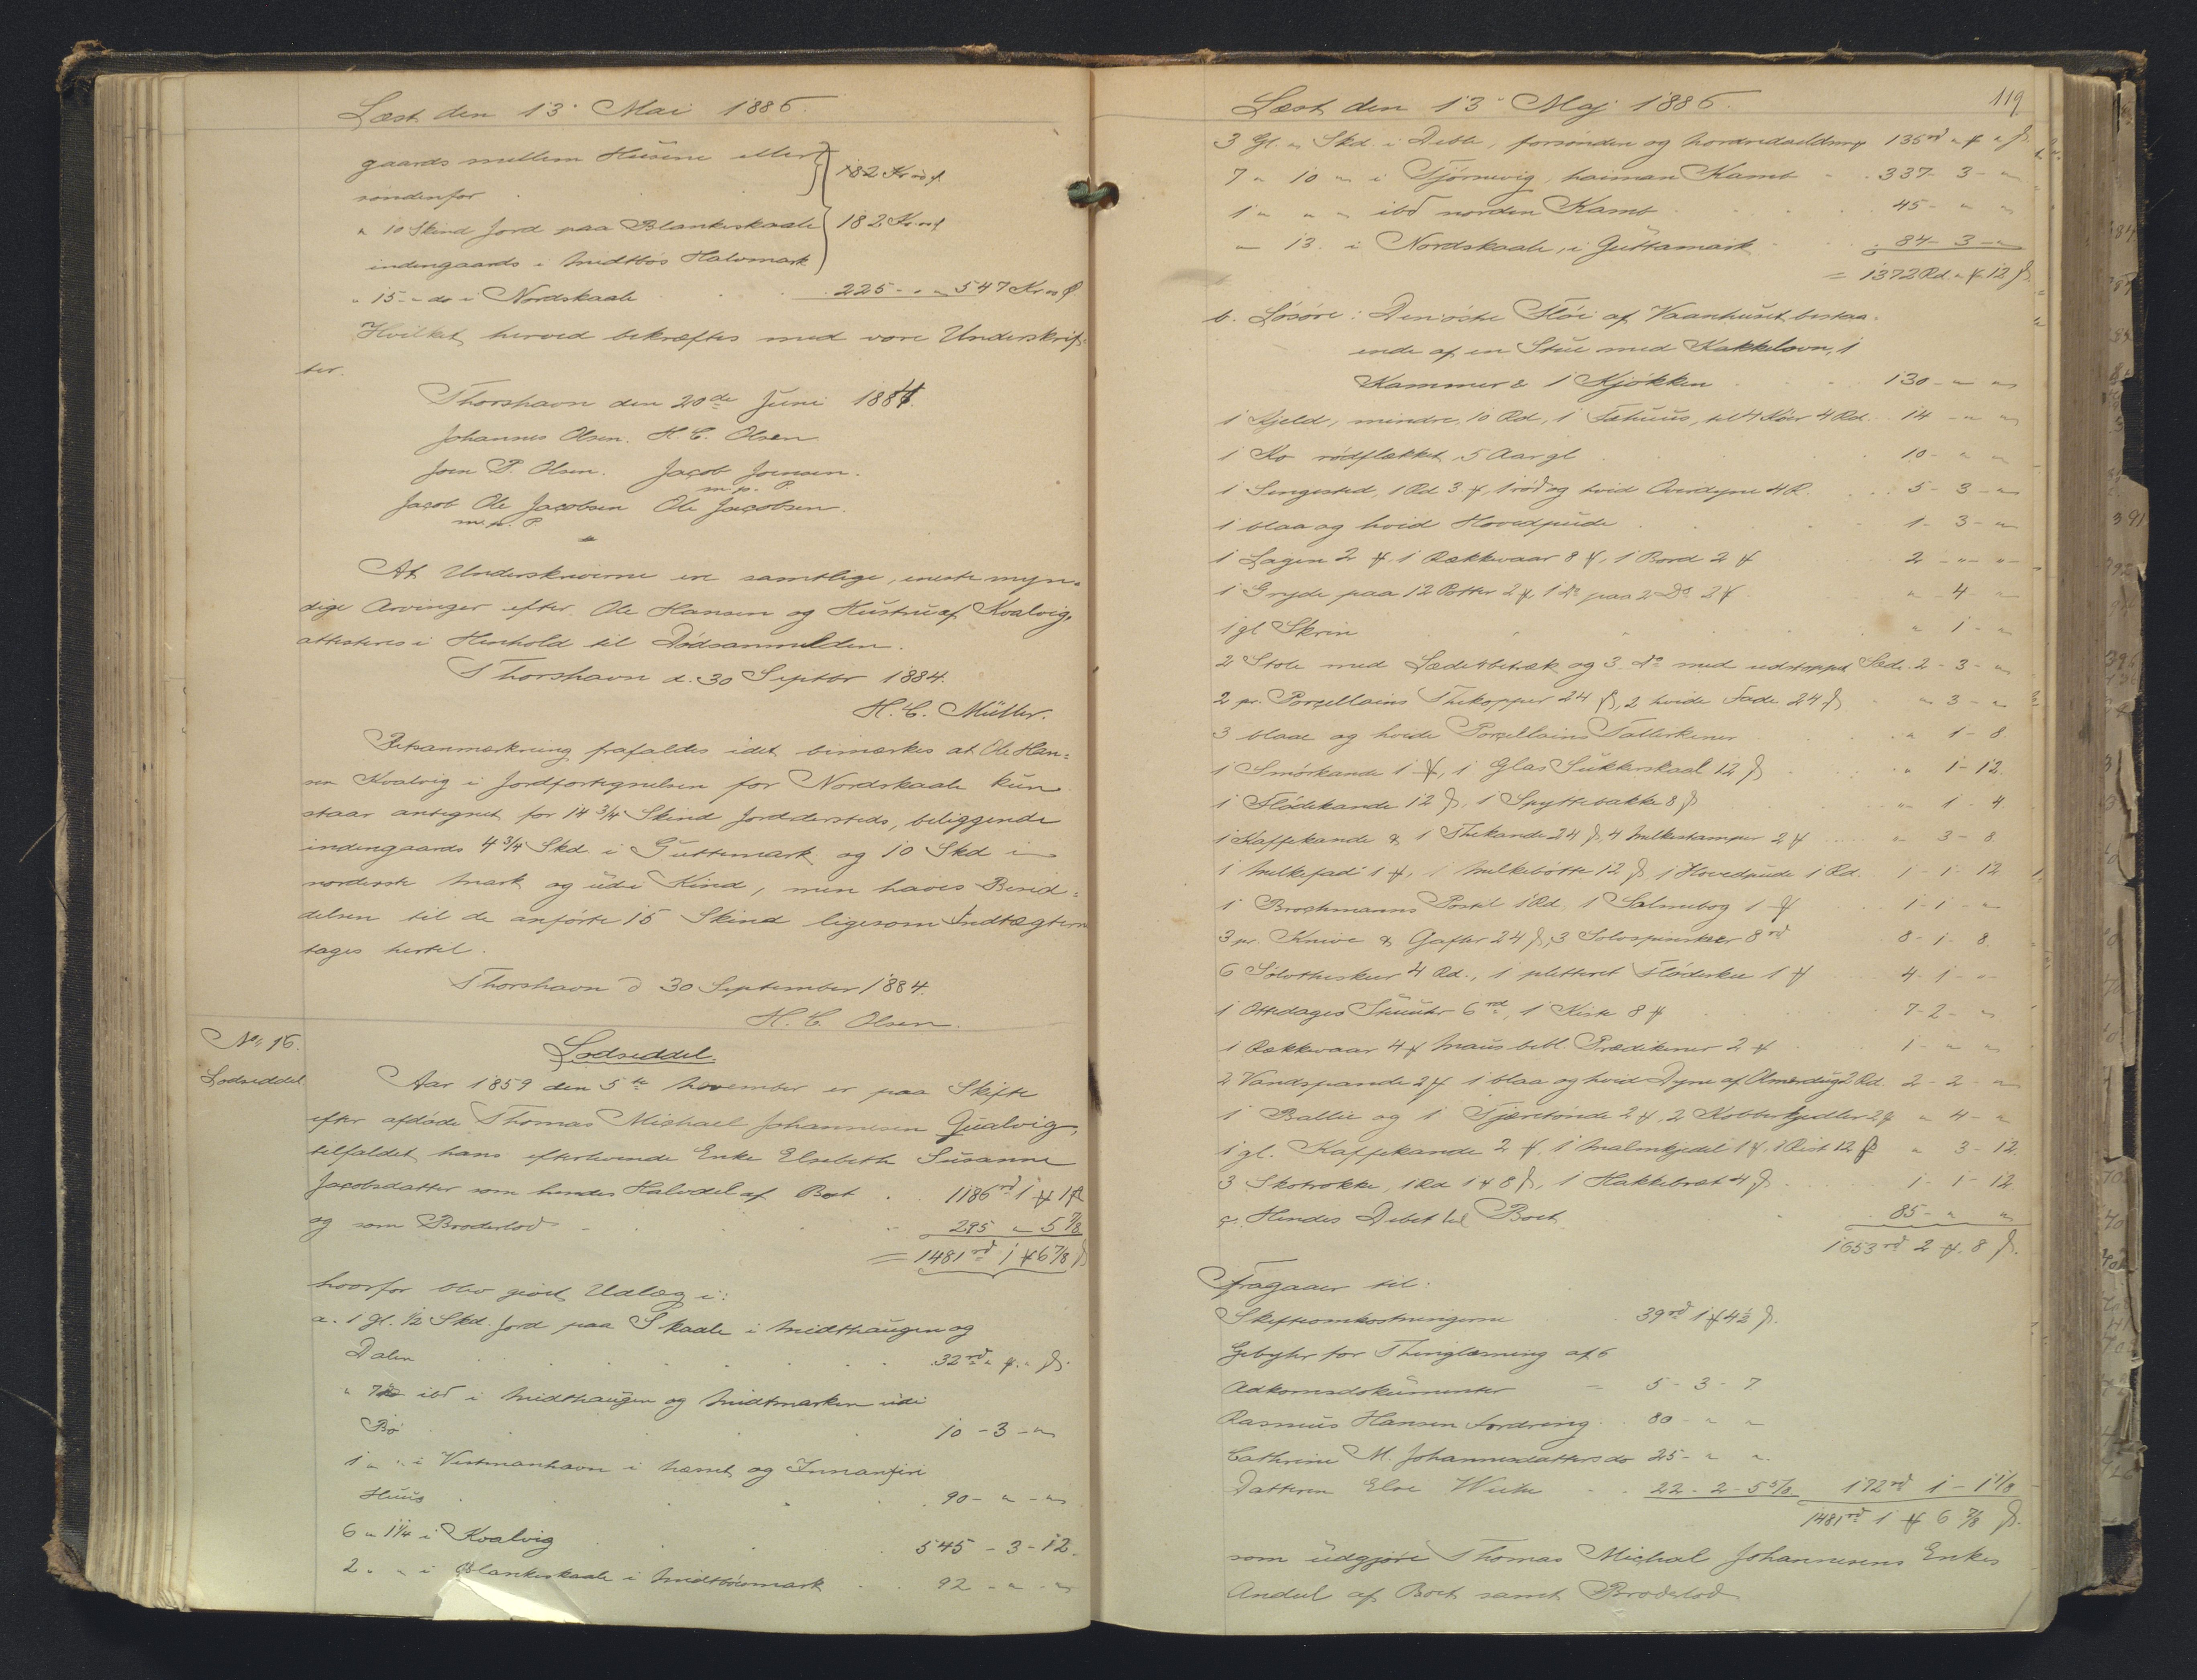 Læst den 13' Mai 1886.
gaards mellem Husene eller
søndenfor . 182 Kr " f.
" 10 Skind Jord paa Blankeskaale 182 Kr " f
indengaards i Midtbös Halvmark
" 15 - do i Nordskaale . . . 225 - " " 547 Kr " f
Hvilket herved bekræftes med vore Underskrif-
ter.
Thorshavn den 20de Juni 1884.
Johannes Olsen. H. C. Olsen.
Joen P. Olsen. Jacob Joensen.
m. p. P.
Jacob Ole Jacobsen Ole Jacobsen.
m. p. P.
At Underskriverne ere samtlige, eneste myn-
dige Arvinger efter Ole Hansen og Hustru af Kvalvig,
attesteres i Henhold til Dødsanmelden.
Thorshavn d. 30 Septbr 1884.
H. C. Müller.
Retsanmærkning frafaldes idet bemærkes at Ole Han-
sen Kvalvig i Jordfortegnelsen for Nordskaale kun
staar antegnet for 14 3/4 Skind Jord dersteds, beliggende
indengaards 4 3/4 Skd. i Guttemark og 10 Skd i
norderste Mark og udi Kind, men haves Berid-
delsen til de anførte 15 Skind ligesom Indtægten
tages hertil.
Thorshavn d 30 September 1884.
H. C. Olsen.
No 16.
Lodseddel
Lodseddel.
Aar 1859 den 5te November er paa Skifte
efter afdøde Thomas Michael Johannesen Qualvig,
tilfaldet hans efterlevende Enke Elsebeth Susanne
Jacobsdatter som hendes Halvdel af Boet . . 1186 rd 1 ₰ 1 ß
og som Broderlod . . 295 " 5 7/8
= 1481 rd 1 ₰ 6 7/8 ß
hvorfor blev gjort Udlæg i:
a. 1 gl. 1/2 Skd. Jord paa Skaale i Midthaugen og
Dalen . . . 32 rd " ₰ " ß.
" 7 ibd i Midthaugen og Midtmarken udi
Bø . . . 10 - 3 - "
1 " " i Vestmanhavn i Næset og Innanfiri
Huus . . . 90 - " - "
6 " 1 1/4 i Kvalvig . . . 545 - 3 - 12.
2 " " i Blankeskaale i Midtböismark . . 92 - " - "
Læst den 13' Maj 1886.
119
3 Gl. " Skd. i Deble, forsønden og 135 rd " ₰ " ß
7 " 10 " i Tjørnevig, haiman Kamb - . 337 - 3 - "
1 " " " ibd norden Kamb . . . 45 - " "
" 13. i Nordskaale, i Guttamark . . 84 - 3 - "
= 1372 Rd. " ₰ 12 ß
b. Løsøre: Den østre Fløi af Vaanhuset bestaa-
ende af en Stue med Kakkelovn, 1
Kammer & 1 Kjøkken . . . 130 - " "
1 Kjeld, mindre, 10 Rd, 1 Fæhuus, til 4 Køer 4 Rd . 14 - " "
1 Ko rødflakket, 5 Aar gl . . . 10 - " "
1 Sengested, 1 Rd 3 ₰, 1 rød og hvid Overdyne 4 R. . . 5 - 3 - "
1 blaa og hvid Hovedpude . . . 1 - 3 - "
1 Lagen 2 ₰, 1 Rækkvaar 8 ₰, 1 Bord 2 ₰ 2 - " - " -
1 Gryde paa 12 Potter 2 ₰, 1 Do paa 2 Do 2 ₰ " - 4 - "
1 gl Skrin . . . " 1 - "
2 Stole med Læderbetræk og 3 do med udstoppet Sæde . 2 - 3 - "
2 pr. Porcellains Thekopper 24 ß, 2 hvide Fade 24 ß . " - 3 - "
3 blaae og hvide Porcellains Tallerkener . . " 1 - 8.
1 Smørkande 1 ₰, 1 Glas Sukkerskaal 12 ß . . " 1 - 12.
1 Flødekande 12 ß, 1 Spyttebakke 8 ß . . " 1 - 4.
1 Kaffekande & 1 Thekande 24 ß, 4 Melkestamper 2 ₰ . . " 3 - 8
1 Melkefad 1 ₰, 1 Melkebøtte 12 ß 1 Hovedpude 1 Rd. 1 - 1 - 12
1 Brochmanns Postil 1 Rd, 1 Salmebog 1 ₰ . . 1 - 1 - "
3 pr. Knive & Gafler 24 ß, 3 Solvspiseskeer 8 rd 8 - 1 - 8.
6 Sølvtheskeer 4 Rd., 1 pletteret Flødeske 1 ₰ . 4 - 1 - "
1 Ottedages Stuuhr 6 rd, 1 Kiste 8 ₰ . . 7 - 2 - "
1 Rækkvaar 4 ₰ Maus bibl. Prædikener 2 ₰ . . 1 - " "
2 Vandspande 2 ₰ 1 blaa og hvid Dyne af Olmerdug 2 Rd. 2 - 2 - "
1 Ballie og 1 Tjæretønde 2 ₰, 2 Kobberkjedler 2 ₰ " 4 - "
1 gl. Kaffekande 2 ₰, 1 Malmkjedel 1 ₰, 1 Rist 12 ß " 3 - 12.
3 Skotrokke, 1 Rd 1 ₰ 8 ß, 1 Hakkebræt 4 ß . . 1 - 1 - 12
c. Hendes Debet til Boet . . . 85 - " "
1653 rd 2 ₰ 8 ß.
Fragaaer til:
Skifteomkostningerne . 39 rd 1 ₰ 4 1/2 ß.
Gebyhr for Thinglæsning af 6
Adkomsdokumenter = 5 - 3 - 7
Rasmus Hansen Fordring . . 80 - " "
Cathrine M. Johannesdatters do 25 - " ".
Datteren Else . . 22 - 2 - 5 5/8 172 rd 1 - 1 1/8
1481 rd 1 ₰ 6 7/8 ß.
som udgjøre Thomas Michal Johannesens Enkes
Andeel af Boet samt Broderlod